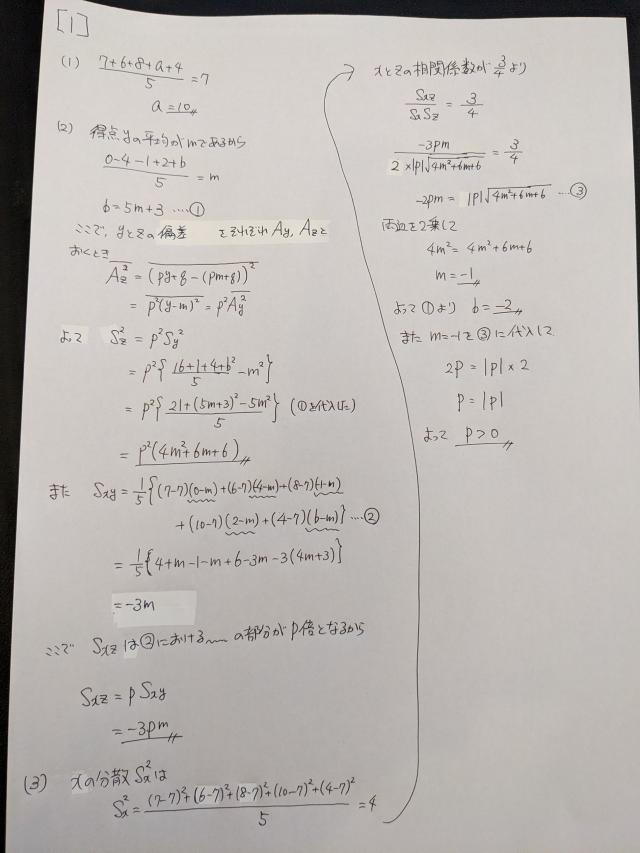 [1]
(1) (7+6+8+a+4)/5 = 7
a = 10
(2) 得点yの平均がmであるから
(0-4-1+2+b)/5 = m
b = 5m+3 ....①
ここで、yとzの偏差をそれぞれAy, Azと
おくとき
\overline{Az^2} = \overline{(py+q-(pm+q))^2}
= \overline{p^2(y-m)^2} = p^2\overline{Ay^2}
よって Sz^2 = p^2Sy^2
= p^2{(16+1+4+b^2)/5 - m^2}
= p^2{(21+(5m+3)^2-5m^2)/5} (①を代入した)
= p^2(4m^2+6m+6)
また Sxy = 1/5{(7-7)(0-m)+(6-7)(-4-m)+(8-7)(-1-m)
+(10-7)(2-m)+(4-7)(b-m)} ....②
= 1/5{4+m-1-m+6-3m-3(4m+3)}
= -3m
ここで Sxzは②における〰の部分がp倍となるから
Sxz = pSxy
= -3pm
(3) xの分散Sx^2は
Sx^2 = ((7-7)^2+(6-7)^2+(8-7)^2+(10-7)^2+(4-7)^2)/5 = 4
xとzの相関係数が3/4より
Sxz/SxSz = 3/4
-3pm/(2×|p|√(4m^2+6m+6)) = 3/4
-2pm = |p|√(4m^2+6m+6) ....③
両辺を2乗して
4m^2 = 4m^2+6m+6
m = -1
よって①より b = -2
また m=-1を③に代入して
2p = |p|×2
p = |p|
よって p>0